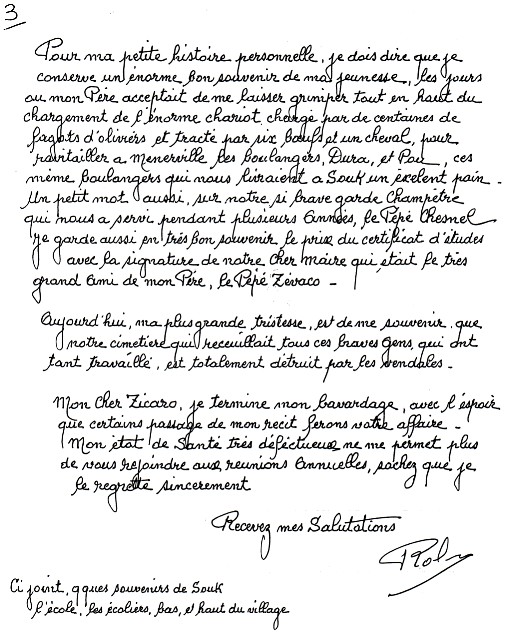 3
Pour ma petite histoire personnelle, je dois dire que je
conserve un énorme bon souvenir de ma jeunesse, les jours
ou mon Père acceptait de me laisser grimper tout en haut du
chargement de l'énorme chariot chargé par de centaines de
fagots d'oliviers et tracté par six boeufs et un cheval, pour
ravitailler a Menerville les boulangers, Dura, et Pou, ces
même boulangers qui nous livraient a Souk un éxelent pain -
Un petit mot aussi, sur notre si brave garde Champêtre
qui nous a servi pendant plusieurs Années, le Pépé Chesnel
je garde aussi en très bon souvenir le prix du certificat d'études
avec la signature de notre cher Maire qui était le très
grand Ami de mon Père, le Pépé Zévaco -
Aujourd'hui, ma plus grande tristesse, est de me souvenir que
notre cimetière qui receuillait tous ces braves gens, qui ont
tant travaillé, est totalement détruit par les vendales -
Mon Cher Zicaro, je termine mon bavardage, avec l'éspoir
que certains passage de mon recit ferons votre affaire -
Mon état de Santé très déféctueux ne me permet plus
de vous rejoindre aux reunions Annuelles, sachez que je
le regrette sincerement
Recevez mes Salutations
Ci joint, qques souvenirs de Souk
l'école, les écoliers, bas, et haut du village